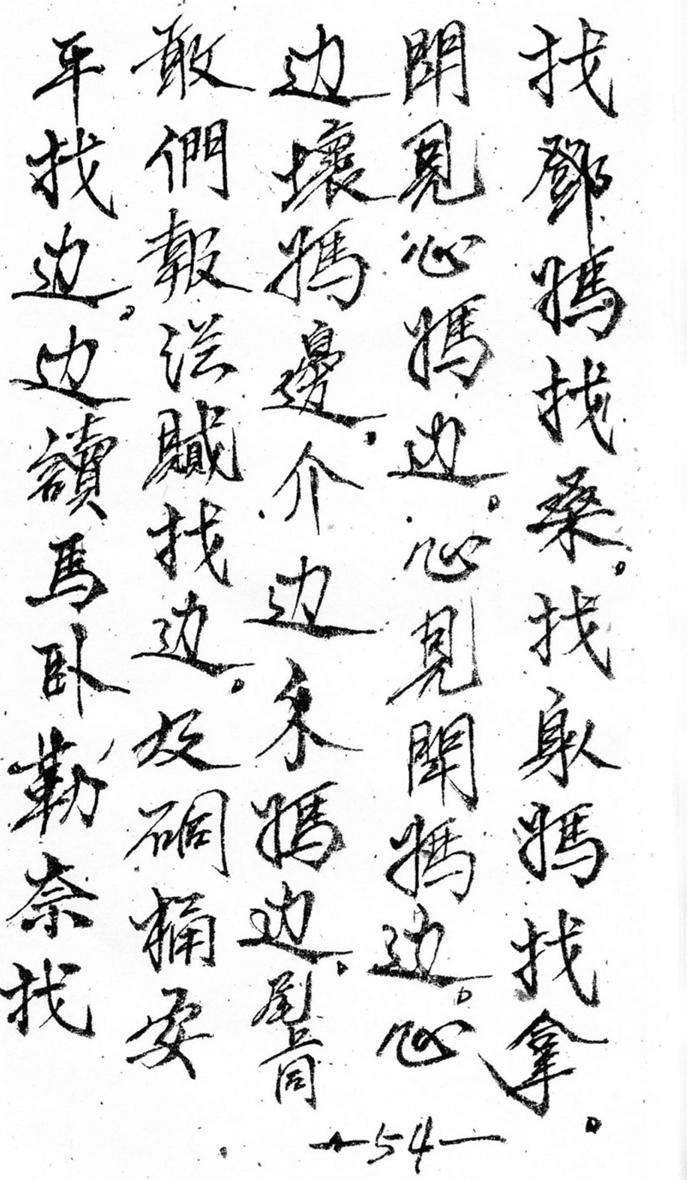 找鄧媽找桑。找身人媽找拿。
聞見心媽边。心見聞媽边。心
边壞媽邊。介边禾媽边。尾
敢們報送贓找边。及硐桶要
平找边。边讀馬卧勒奈找
-54-